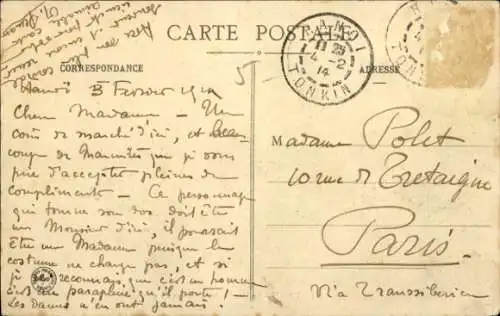 CARTE POSTALE
CORRESPONDANCE
ADRESSE
5
HANOI
11 25
4 - 2
14
TONKIN
Hanoï 3 Fevrier 1914
Chère Madame - Un
coin de marché d'ici, et beau
coup de que je vous
prie d'accepter pleines de
compliments - Ce personnage
qui tourne son dos doit être
un Monsieur d'ici, il pourrait
être un Madame puisque le
costume ne change pas, et si
je reconnais que c'est un homme
c'est au parapluie qu'il porte! -
Les dames n'en ont jamais.
Madame Polet
10 rue de Tretaigne
Paris.
Via Transsiberien